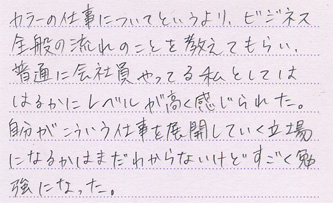 カラーの仕事についてというより、ビジネス
全般の流れのことを教えてもらい、
普通に会社員やってる私としては
はるかにレベルが高く感じられた。
自分がこういう仕事を展開していく立場
になるかはまだわからないけどすごく勉
強になった。